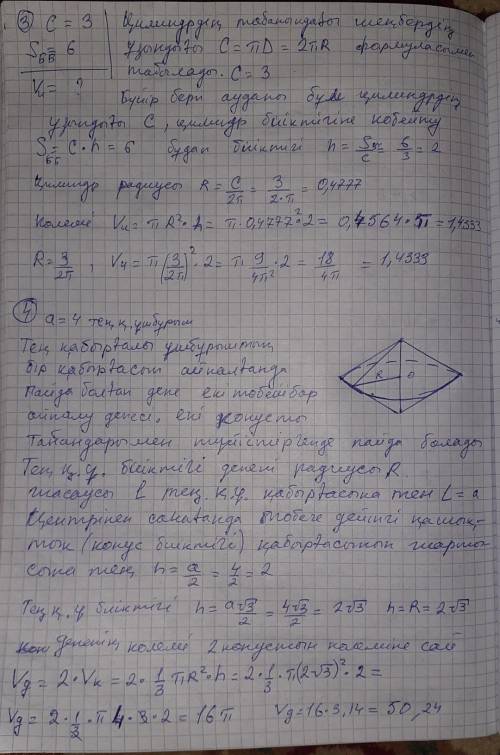 ③ C = 3
Цилиндрдің табанындағы шеңбердің
Sбб = 6
ұзындығы C = πD = 2πR формуласымен
Vц = ?
табылады. C = 3
Бүйір беті ауданы бұл цилиндрдің
ұзындығы C, цилиндр биіктігіне көбейту
Sбб = C · h = 6 бұдан биіктігі h = Sбб/C = 6/3 = 2
Цилиндр радиусы R = C/2π = 3/2·π = 0,4777
Көлемі Vц = πR² · h = π · 0,4777² · 2 = 0,4564 · π = 1,4333
R = 3/2π , Vц = π(3/2π)² · 2 = π · 9/4π² · 2 = 18/4π = 1,4333
④ a = 4 тең қ. үшбұрыш
Тең қабырғалы үшбұрыштың
бір қабырғасын айналғанда
R O
пайда болған дене екі төбесі бар
айналу денесі, екі конусты
табандарымен түйістіргенде пайда болады
Тең қ. ү. биіктігі дененің радиусы R
жасаушы L тең. қ.ү. қабырғасына тең L = a
Центрінен санағанда төбеге дейінгі қашық-
тық (конус биіктігі) қабырғасының жарты-
сына тең h = a/2 = 4/2 = 2
Тең қ. ү биіктігі h = a√3/2 = 4√3/2 = 2√3 h = R = 2√3
дененің көлемі 2 конустың көлеміне сай
Vд = 2 · Vк = 2 · 1/3 πR² · h = 2 · 1/3 · π(2√3)² · 2 =
Vд = 2 · 1/3 · π 4 · 3 · 2 = 16π Vд = 16 · 3,14 = 50,24